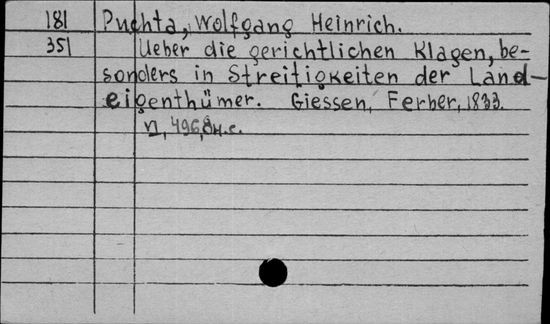 181 Puchta, Wolfgang Heinrich.
351 Ueber die gerichtlichen Klagen, be-
sonders in Streitigkeiten der Land-
eigenthümer. Giessen, Ferber, 1833.
VI, 496, 8н.с.